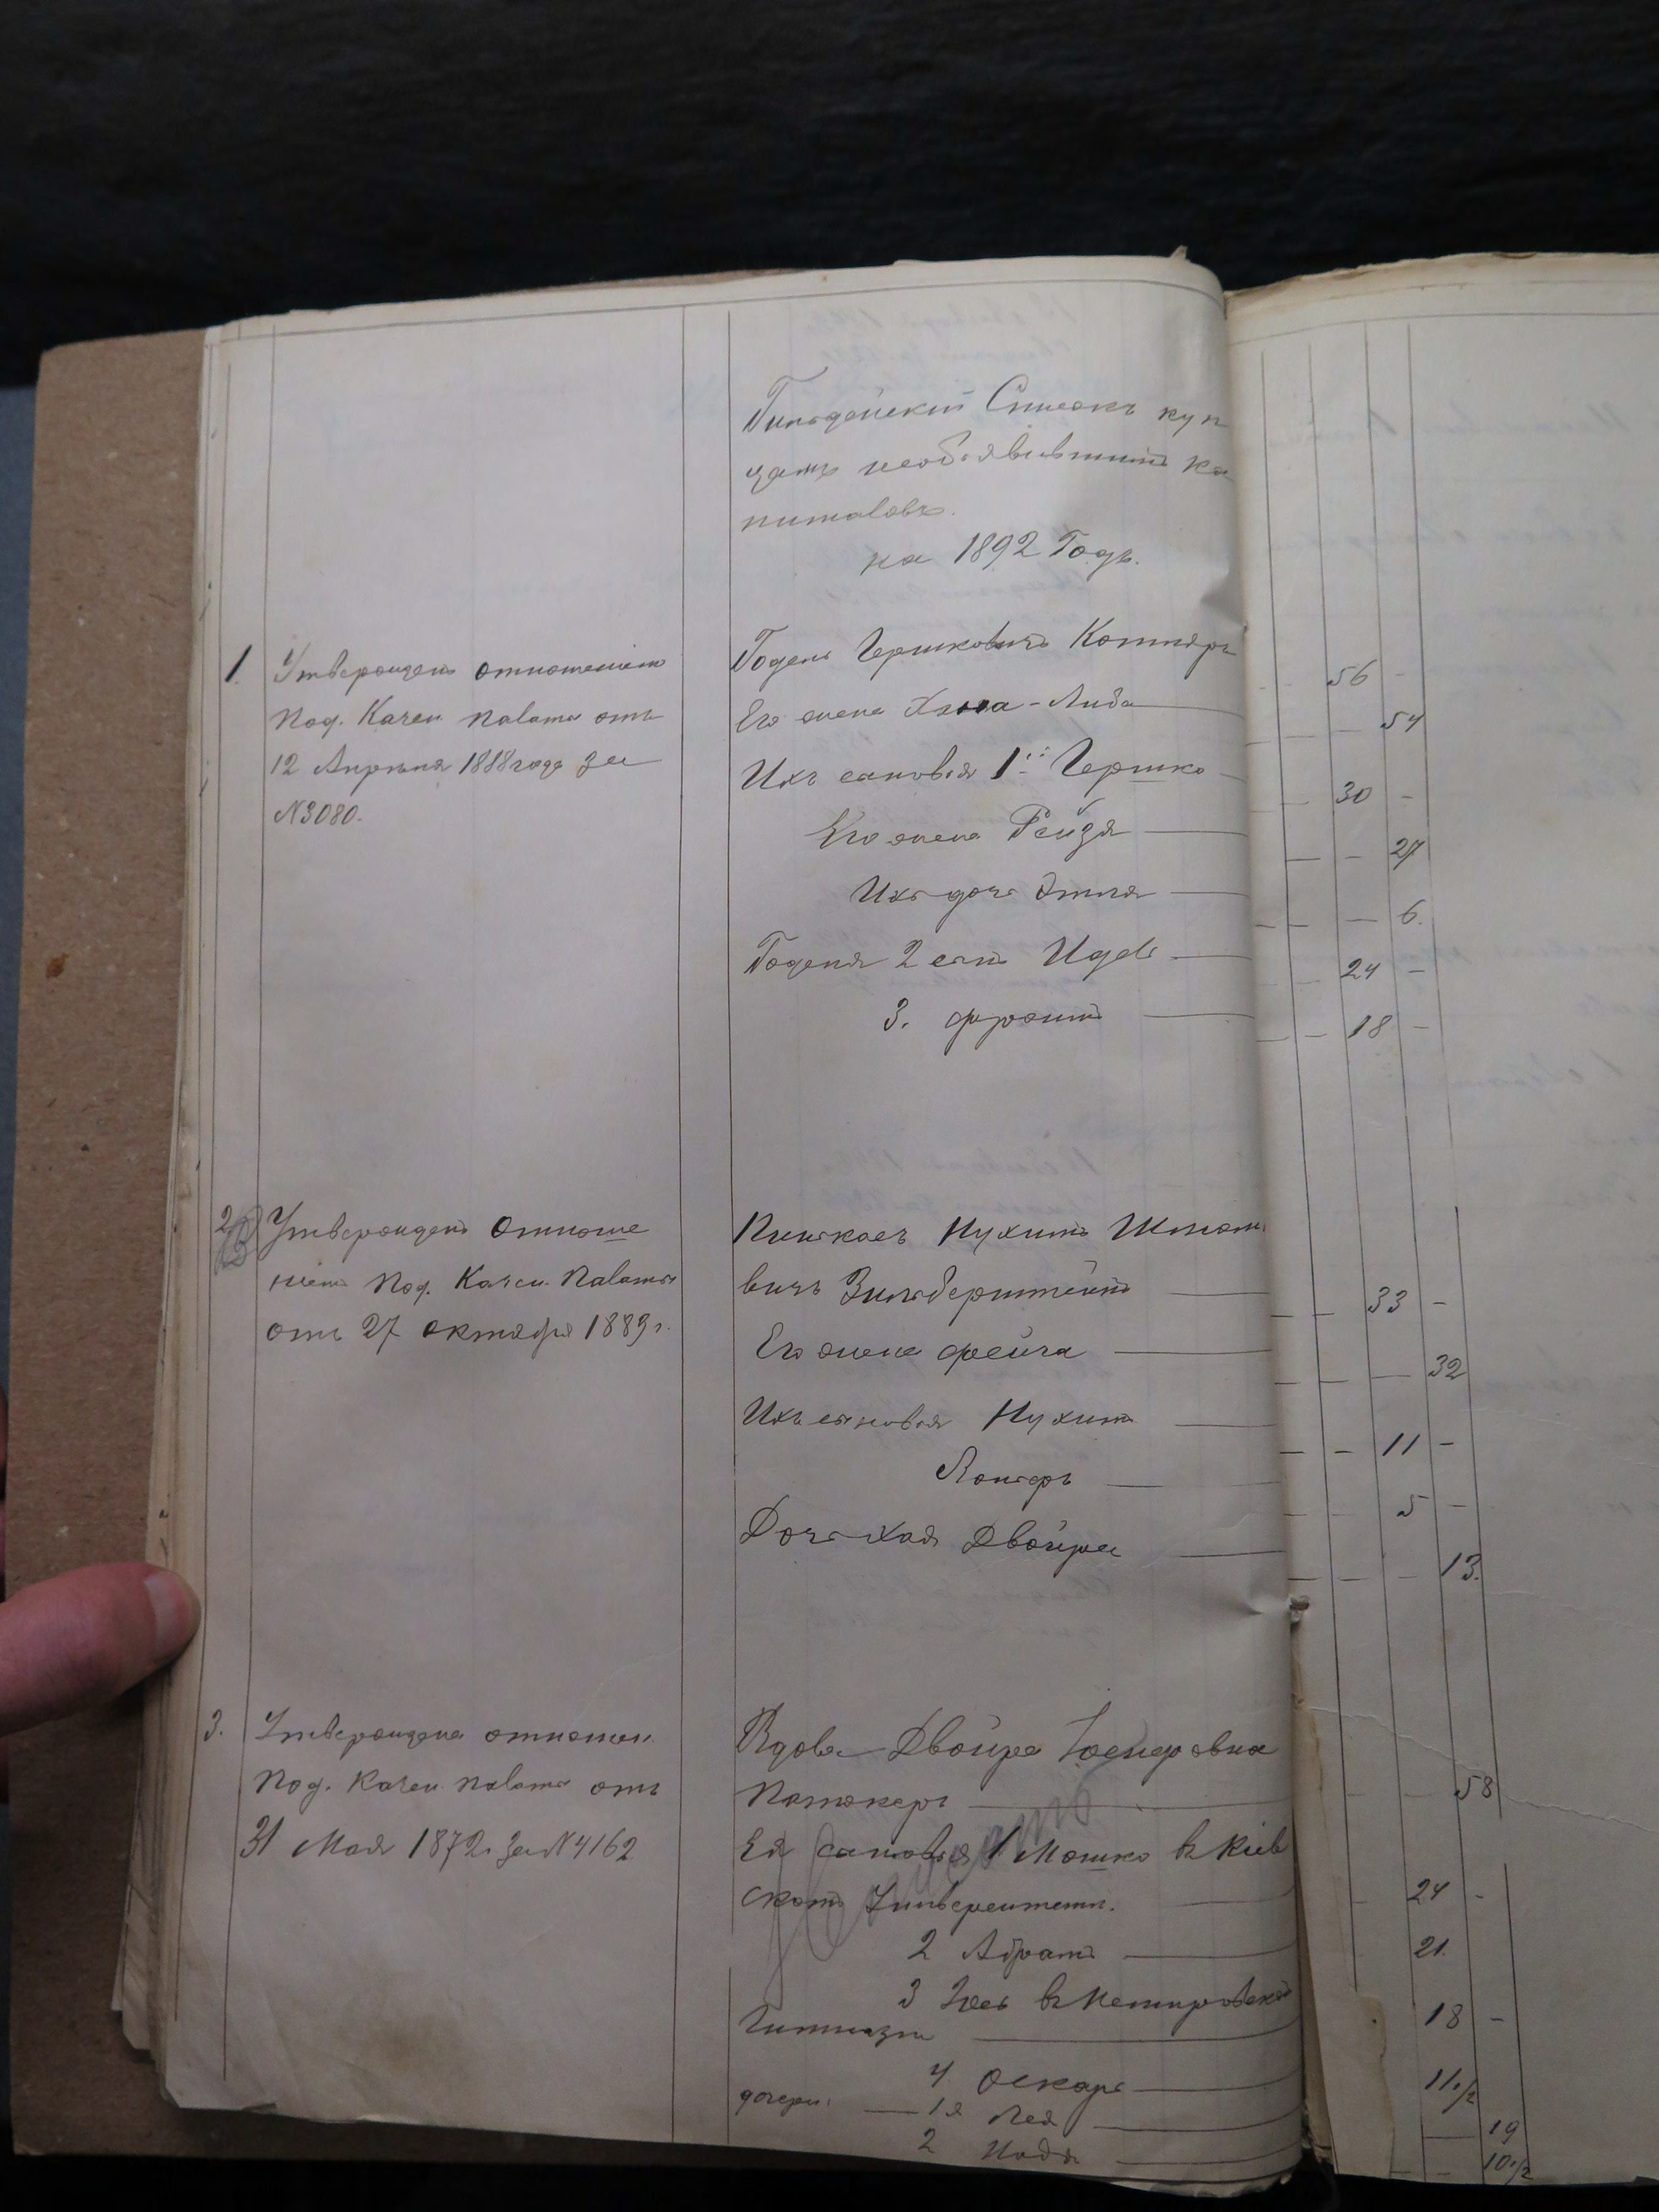 Гильдейскій Списокъ куп
цамъ необъявившимъ ка
питаловъ.
на 1892 Годъ.
1. Утвержденъ отношеніемъ
Под. Казен. Палаты отъ
12 Апрѣля 1888 года за
№3080.
Годель Гершковичъ Котляръ
56 -
Его жена Хана-Либа
54
Ихъ сыновья 1й Гершко
30 -
Его жена Рейзя
27
Ихъ дочь Этля
6.
Годеля 2 сынъ Идель
24 -
3. Фроимъ
18 -
2 Утвержденъ Отноше
ніемъ Под. Казен. Палаты
отъ 27 Октября 1889 г.
Пинкасъ Нухимъ Шмоть
вичъ Зильберштейнъ
33 -
Его жена Фейга
32
Ихъ сыновья Нухимъ
11 -
5 -
Дочь Хая Двойра
13.
3. Утверждена отношен.
Под. Казен Палаты отъ
31 Мая 1872 г. за №4162
Вдова Двойра
58
Ея сыновья 1 Мошко въ Кіев
скомъ Университетѣ.
24 -
2 Абрамъ
21.
3 Іось въ Немировской
Гимназіи
18 -
4 Оскаръ
11 1/2
дочери: 1я Лея
19
2 Надя
10 1/2